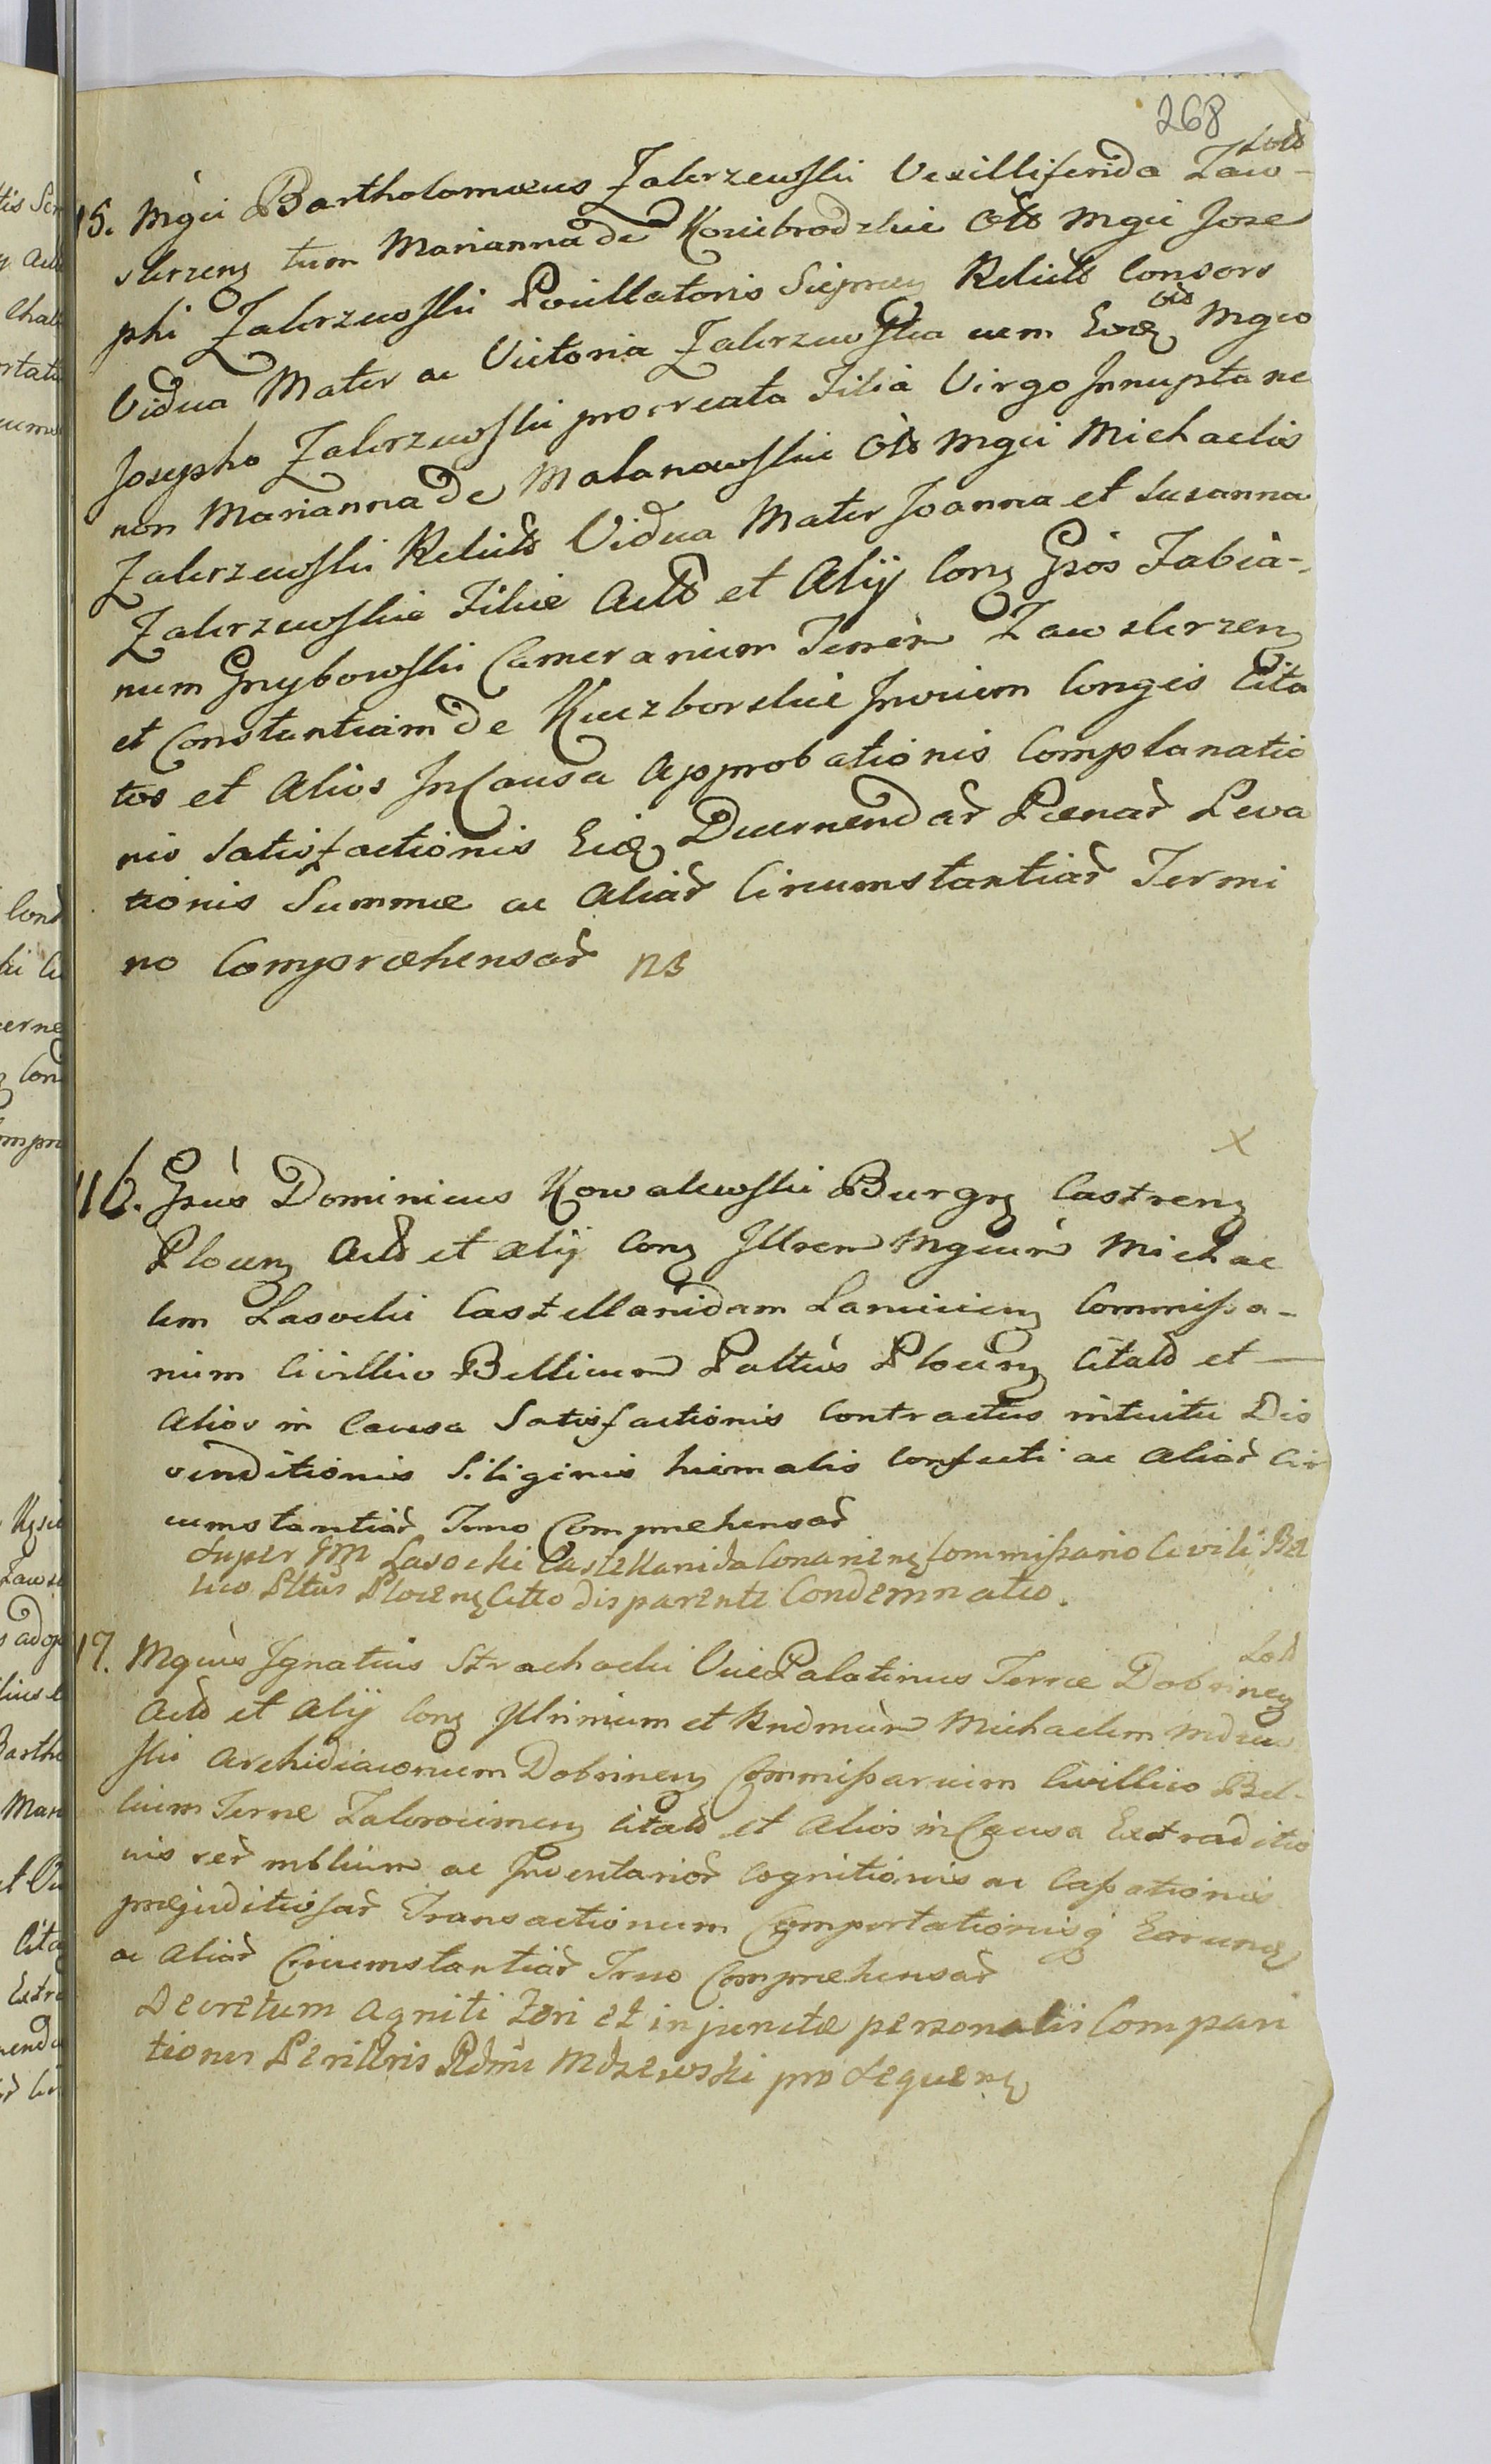 268
Lctt
15. Mgci Bartholomæus Zakrzewski Vexilliferida Zaw-
skrzeng tum Marianna de Kozicbrodzkie Olt Mgci Jose
phi Zakrzewski Pocillatoris Sieprceng Relicta Consors
Vidua Mater ac Victoria Zakrzewska cum Eodg olt Mgco
Josepho Zakrzewski procreata Filia Virgo Innupta nec
non Marianna de Malanowskie Olt Mgci Michaelis
Zakrzewski Relicta Vidua Mater Joanna et Susanna
Zakrzewskie Filiæ Actt et Alij Cong Gsos Fabia-
num Grzybowski Camerarium Terrem Zawskrzeng
et Constantiam de Kuczborskie Invicem Congis Cita
tos et Alios In Causa Approbationis Complanatio
nis Satisfactionis Eidg Decernendar Pœnar Leva
tionis Summæ ac Aliar Circumstantiar Termi
no Compræhensar ns
x
116. Gsus Dominicus Kowalewski Burgrg Castreng
Ploceng Actt et Alij Cong Illrem Mgcum Michae
lem Lasocki Castellanidam Conarieng Commissa-
rium Civillico Bellicum Paltus Ploceng Citatt et —
Alios in Causa Satisfactionis Contractus intuitu Dis
venditionis Siliginis hiemalis Confecti ac Aliar Cir
cumstantiar Tmno Compræhensar
Super GM Lasocki Castellanida Conarieng Commissario Civili Bel
lico Pltus Ploceng Citto disparente Condemnatio.
Lctt
17. Mgcus Ignatius Strachocki Vice Palatinus Terræ Dobrineng
Actt et Alij Cong Illrimum et Rndmum Michaelem Mdzew
ski Archidiaconum Dobrineng Commissarium Civillico Bel-
licum Terræ Zakrocimeng Citatt et Alios in Causa Extraditio
nis rer mblium ac Inventarior Cognitionis ac Cassationis
præjuditiosar Transactionum Comportationisq Earung
ac Aliar Circumstantiar Trno Compræhensar
Decretum agniti Fori et injunctæ personalis Compari
tionis Perillris Rdmi Mdzewski pro sequeng